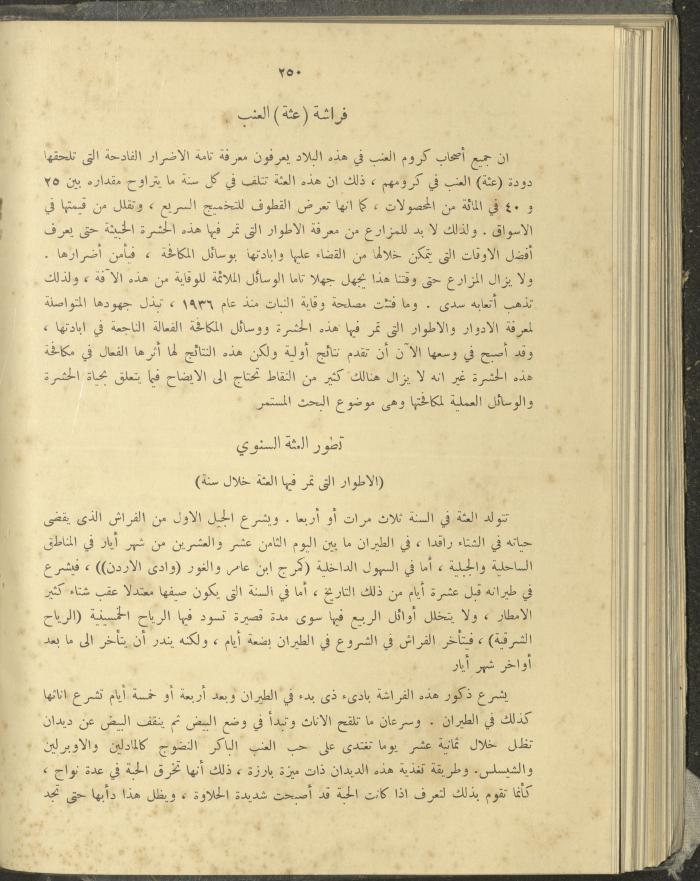 ٢٥٠
فراشة (عثة) العنب
ان جميع أصحاب كروم العنب في هذه البلاد يعرفون معرفة تامة الاضرار الفادحة التى تلحقها
دودة (عثة) العنب في كرومهم ، ذلك ان هذه العثة تتلف في كل سنة ما يتراوح مقداره بين ٢٥
و ٤٠ في المائة من المحصولات ، كما انها تعرض القطوف للتخميج السريع ، وتقلل من قيمتها في
الاسواق . ولذلك لا بد للمزارع من معرفة الاطوار التى تمر فيها هذه الحشرة الخبيثة حتى يعرف
أفضل الاوقات التى يتمكن خلالها من القضاء عليها وابادتها بوسائل المكافحة ، فيأمن أضرارها .
ولا يزال المزارع حتى وقتنا هذا يجهل جهلا تاما الوسائل الملائمة للوقاية من هذه الآفة ، ولذلك
تذهب أتعابه سدى . وما فتئت مصلحة وقاية النبات منذ عام ١٩٣٦ ، تبذل جهودها المتواصلة
لمعرفة الادوار والاطوار التى تمر فيها هذه الحشرة ووسائل المكافحة الفعالة الناجعة في ابادتها ،
وقد أصبح في وسعها الآن أن تقدم نتائج أولية ولكن هذه النتائج لها أثرها الفعال في مكافحة
هذه الحشرة غير انه لا يزال هنالك كثير من النقاط تحتاج الى الايضاح فيما يتعلق بحياة الحشرة
والوسائل العملية لمكافحتها وهى موضوع البحث المستمر
تطور العثة السنوي
(الاطوار التى تمر فيها العثة خلال سنة)
تتولد العثة في السنة ثلاث مرات أو أربعا . ويشرع الجيل الاول من الفراش الذى يقضى
حياته في الشتاء راقدا ، في الطيران ما بين اليوم الثامن عشر والعشرين من شهر أيار في المناطق
الساحلية والجبلية ، أما في السهول الداخلية (كمرج ابن عامر والغور (وادى الاردن)) ، فيشرع
في طيرانه قبل عشرة أيام من ذلك التاريخ ، أما في السنة التى يكون صيفها معتدلا عقب شتاء كثير
الامطار ، ولا يتخلل أوائل الربيع فيها سوى مدة قصيرة تسود فيها الرياح الخمسينية (الرياح
الشرقية) ، فيتأخر الفراش في الشروع في الطيران بضعة أيام ، ولكنه يندر أن يتأخر الى ما بعد
أواخر شهر أيار
يشرع ذكور هذه الفراشة بادىء ذى بدء في الطيران وبعد أربعة أو خمسة أيام تشرع اناثها
كذلك في الطيران . وسرعان ما تلقح الاناث وتبدأ في وضع البيض ثم ينقف البيض عن ديدان
تظل خلال ثمانية عشر يوما تغتدى على حب العنب الباكر النضوج كالمادلين والاوبرلين
والشيسلس. وطريقة تغذية هذه الديدان ذات ميزة بارزة ، ذلك أنها تخرق الحبة في عدة نواح ،
كأنما تقوم بذلك لتعرف اذا كانت الحبة قد أصبحت شديدة الحلاوة ، ويظل هذا دأبها حتى تجد